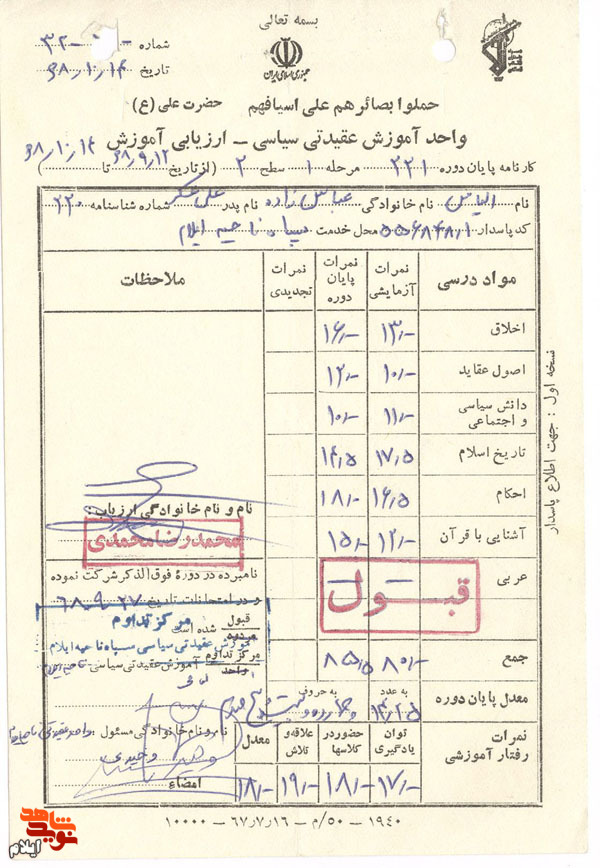 بسمه تعالی
جمهوری اسلامی ایران
شماره
تاریخ ۶۸٫۱۰٫۱۴
حملوا بصائرهم علی اسیافهم حضرت علی (ع)
واحد آموزش عقیدتی سیاسی - ارزیابی آموزش
کارنامه پایان دوره ۲۲۱ مرحله ۱ سطح ۲ (از تاریخ ۶۸٫۹٫۱۲ تا ۶۸٫۱۰٫۱۴)
نام الیاس نام خانوادگی عباس زاده نام پدر علی عسکر شماره شناسنامه ۲۲۰
کد پاسدار محل خدمت سپاه ناحیه ایلام
مواد درسی نمرات آزمایشی نمرات پایان دوره نمرات تجدیدی ملاحظات
اخلاق ۱۳٫- ۱۶٫-
اصول عقاید ۱۰٫- ۱۲٫-
دانش سیاسی و اجتماعی ۱۱٫- ۱۰٫-
تاریخ اسلام ۱۷٫۵ ۱۴٫۵
احکام ۱۶٫۵ ۱۸٫-
آشنایی با قرآن ۱۲٫- ۱۵٫-
عربی - -
قبول
جمع ۸۰٫- ۸۵٫۵
معدل پایان دوره به عدد ۱۴٫۲۵ به حروف
نام و نام خانوادگی ارزیاب:
محمدرضا محمدی
نامبرده در دوره فوق الذکر شرکت نموده
و در امتحانات تاریخ ۶۸٫۹٫۲۷
قبول
مردود
شده است
مرکز تداوم
آموزش عقیدتی سیاسی سپاه ناحیه ایلام
مرکز تداوم
واحد
آموزش عقیدتی سیاسی
نام و نام خانوادگی مسئول واحد عقیدتی
وحیدی
امضاء
نمرات رفتار آموزشی توان یادگیری حضور در کلاسها علاقه و تلاش معدل
۱۷٫- ۱۸٫- ۱۹٫- ۱۸٫-
نسخه اول : جهت اطلاع پاسدار
۱۹۴۰ - ۵۰/م - ۶۷٫۷٫۱۶ - ۱۰۰۰۰
نوید شاهد
ایلام